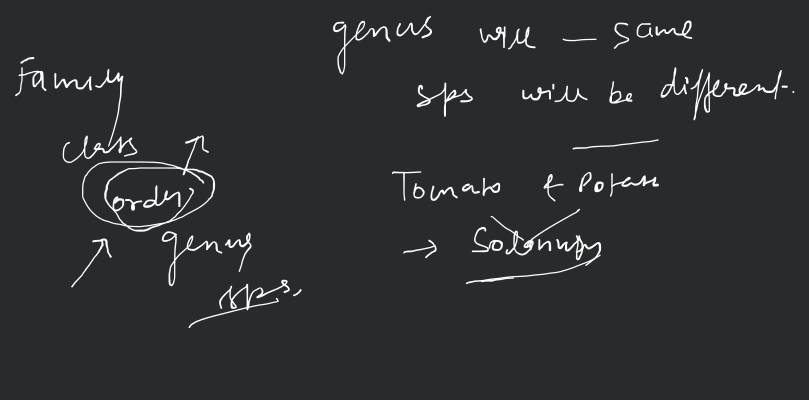 genus will — same
Family
sps will be different.
class
order
Tomato & Potato
genus
→ Solanum
sps,